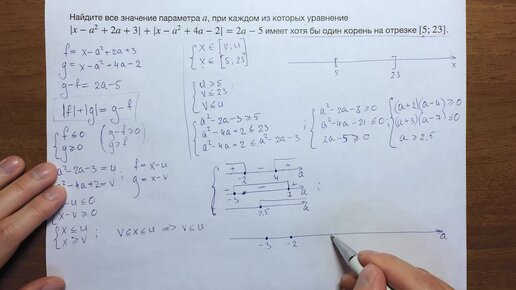 Найдите все значение параметра a, при каждом из которых уравнение
|x − a² + 2a + 3| + |x − a² + 4a − 2| = 2a − 5 имеет хотя бы один корень на отрезке [5; 23].
f = x − a² + 2a + 3
g = x − a² + 4a − 2
g − f = 2a − 5
|f| + |g| = g − f
{ f ≤ 0
g ≥ 0
( g − f ≥ 0
g ≥ f
a² − 2a − 3 = u
a² − 4a + 2 = v
f = x − u
g = x − v
x − u ≤ 0
x − v ≥ 0
{ x ≤ u
x ≥ v
v ≤ x ≤ u ⇒ v ≤ u
{ x ∈ [v; u]
x ∈ [5; 23]
{ u ≥ 5
v ≤ 23
v ≤ u
{ a² − 2a − 3 ≥ 5
a² − 4a + 2 ≤ 23
a² − 4a + 2 ≤ a² − 2a − 3
{ a² − 2a − 8 ≥ 0
a² − 4a − 21 ≤ 0
2a − 5 ≥ 0
{ (a+2)(a−4) ≥ 0
(a+3)(a−7) ≤ 0
a ≥ 2,5
5 23 x
+ − +
−2 4 a
+ − +
−3 7 a
2,5 a
;
−3 −2 a